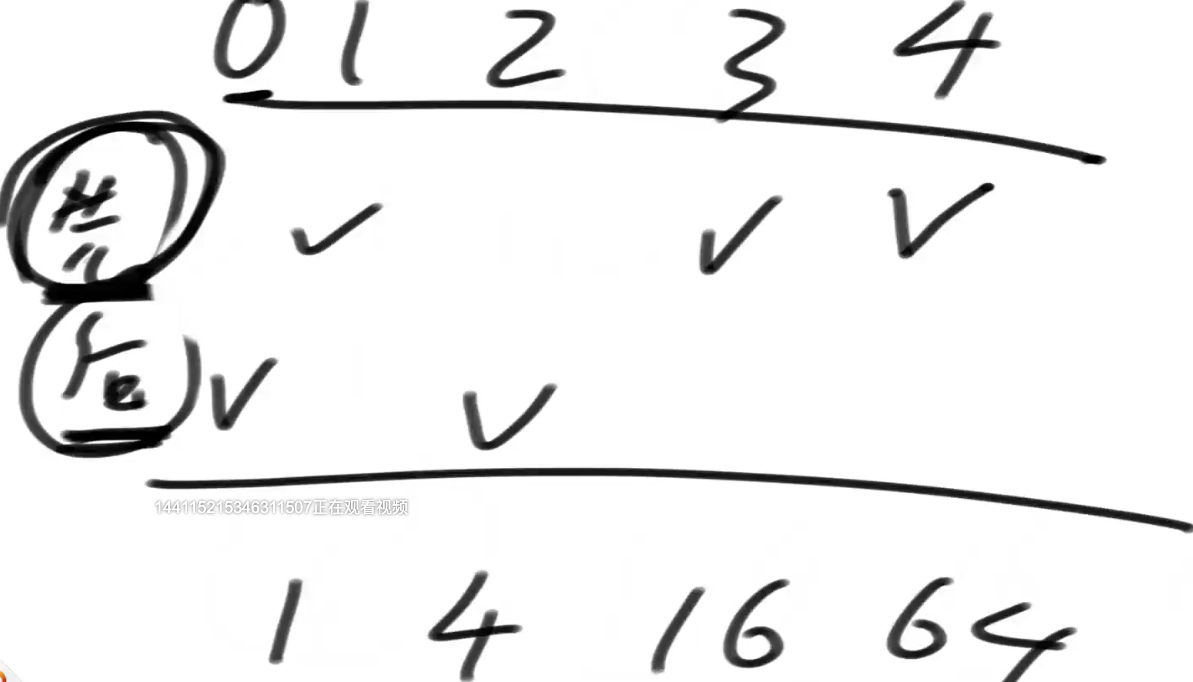 0 1 2 3 4
共
后
144115215346311507正在观看视频
1 4 16 64